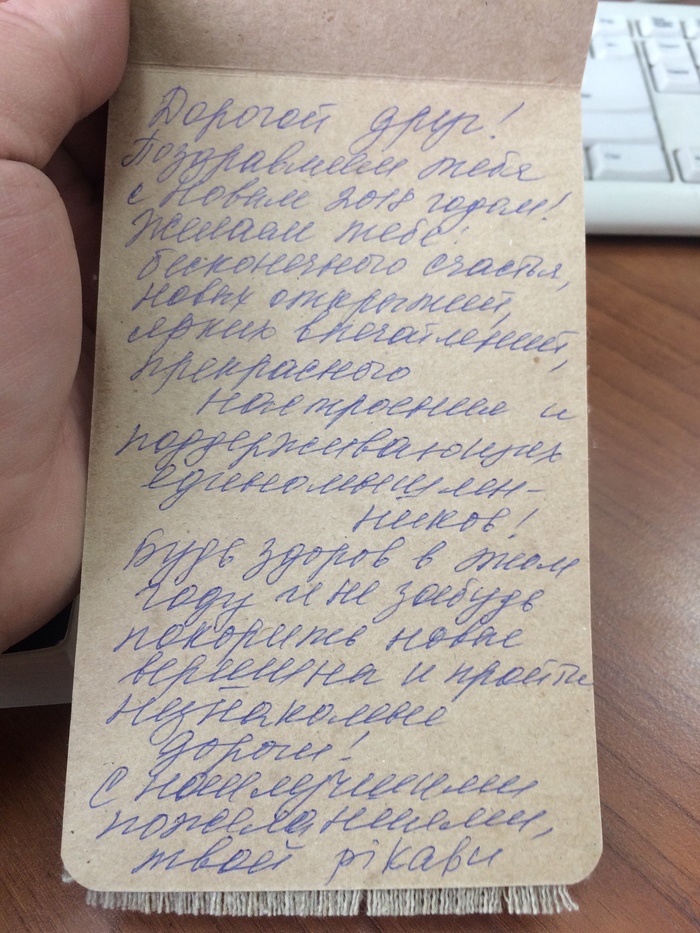 Дорогой друг!
Поздравляем тебя
с Новым 2018 годом!
Желаем тебе:
бесконечного счастья,
новых открытий,
ярких впечатлений,
прекрасного
настроения и
поддерживающих
единомышлен-
ников!
Будь здоров в этом
году и не забудь
покорить новые
вершины и пройти
незнакомые
дороги!
С наилучшими
пожеланиями,
твой